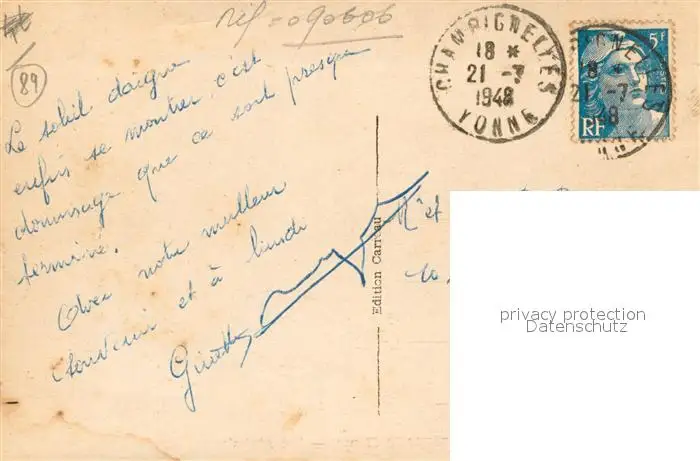 ref = 090606
89
CHAMPIGNELLES
18 *
21 -7
1948
YONNE
5F
RF
18 *
21 -7
48
Le soleil daigne
enfin se montrer c'est
dommage que ce soit presque
terminé.
Avec notre meilleur
souvenir et à lundi
Edition Carreau
Mr et
10,
privacy protection
Datenschutz